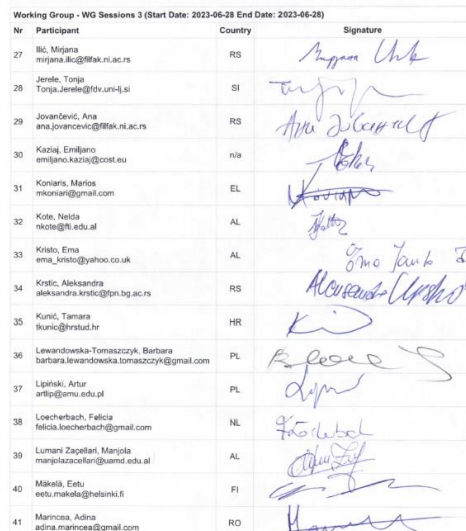 Working Group - WG Sessions 3 (Start Date: 2023-06-28 End Date: 2023-06-28)
Nr Participant Country Signature
27 Ilić, Mirjana RS
mirjana.ilic@filfak.ni.ac.rs
28 Jerele, Tonja SI
Tonja.Jerele@fdv.uni-lj.si
29 Jovančević, Ana RS
ana.jovancevic@filfak.ni.ac.rs
30 Kaziaj, Emiljano n/a
emiljano.kaziaj@cost.eu
31 Koniaris, Marios EL
mkoniari@gmail.com
32 Kote, Nelda AL
nkote@fti.edu.al
33 Kristo, Ema AL
ema_kristo@yahoo.co.uk
34 Krstic, Aleksandra RS
aleksandra.krstic@fpn.bg.ac.rs
35 Kunić, Tamara HR
tkunic@hrstud.hr
36 Lewandowska-Tomaszczyk, Barbara PL
barbara.lewandowska.tomaszczyk@gmail.com
37 Lipiński, Artur PL
artlip@amu.edu.pl
38 Loecherbach, Felicia NL
felicia.loecherbach@gmail.com
39 Lumani Zaçellari, Manjola AL
manjolazacellari@uamd.edu.al
40 Mäkelä, Eetu FI
eetu.makela@helsinki.fi
41 Marincea, Adina RO
adina.marincea@gmail.com